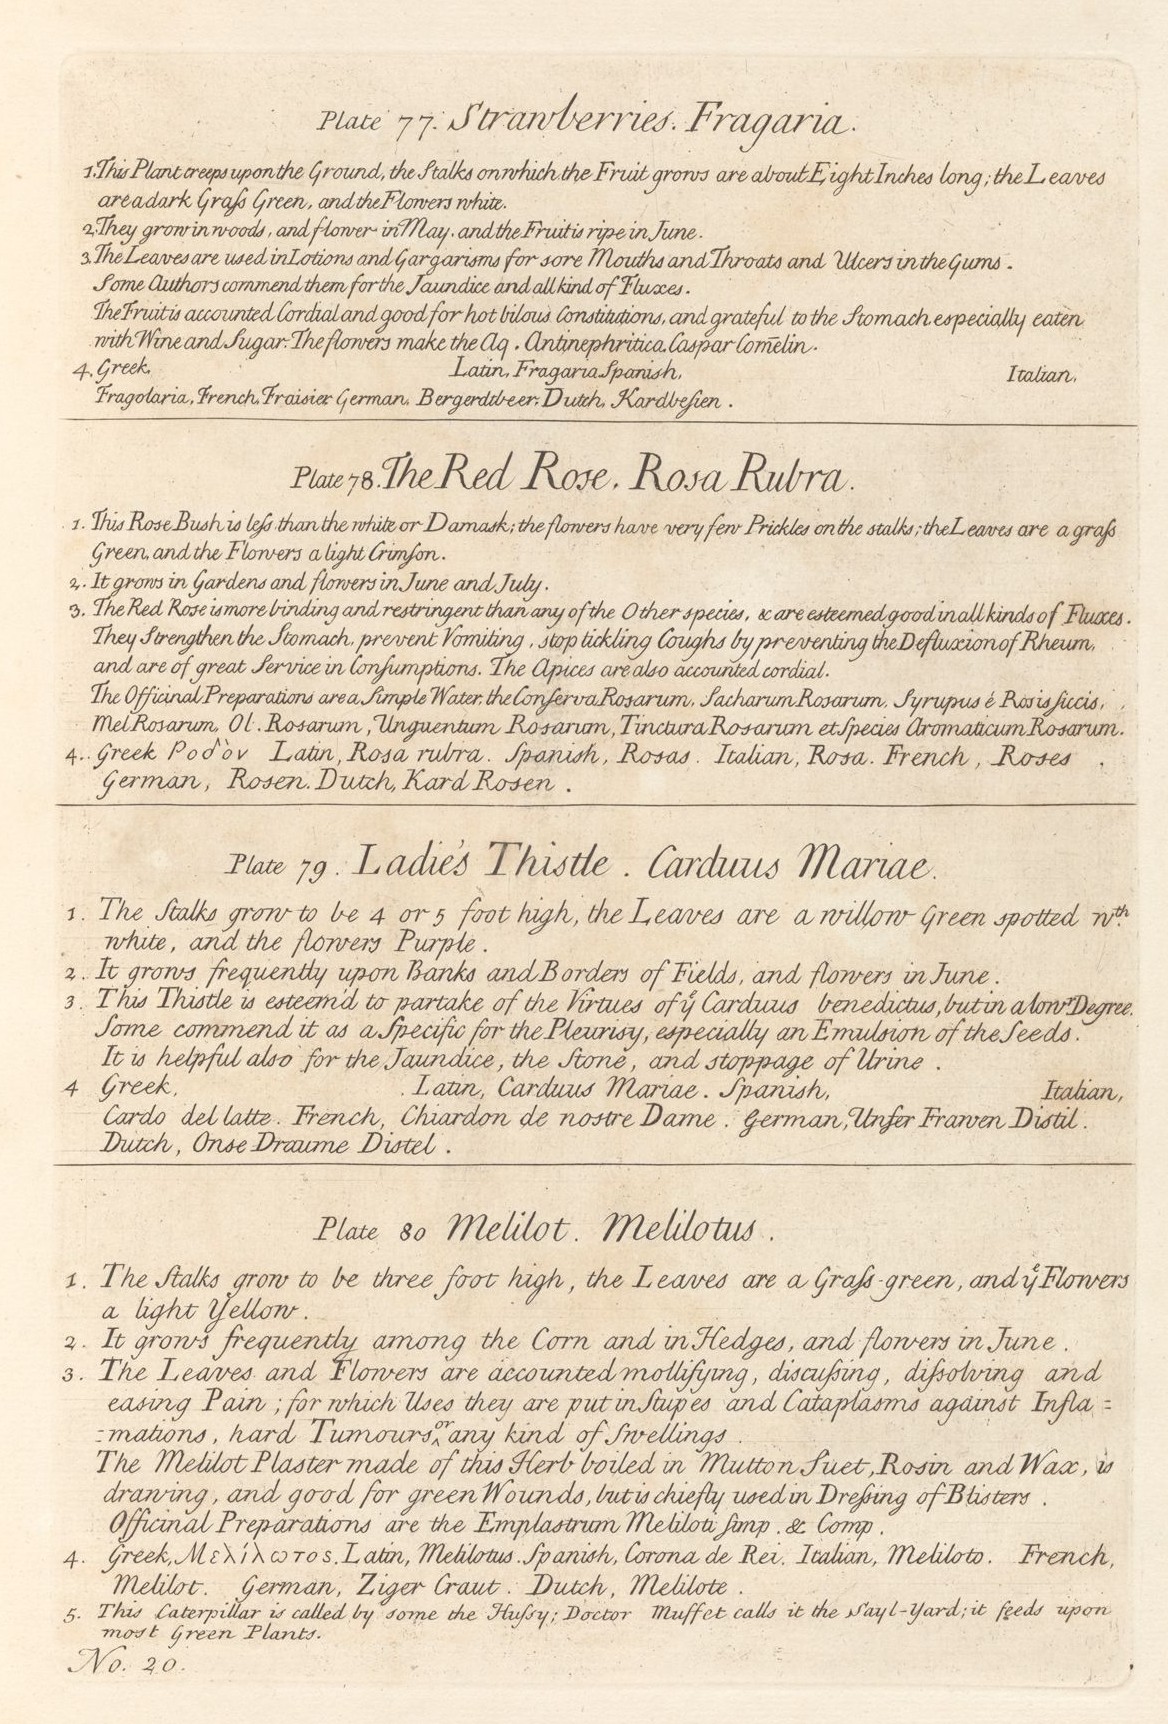 Plate 77. Strawberries. Fragaria.
1. This Plant creeps upon the Ground, the Stalks on which the Fruit grows are about Eight Inches long; the Leaves
are a dark Graſs Green, and the Flowers white.
2. They grow in woods, and flower in May. and the Fruit is ripe in June.
3. The Leaves are used in Lotions and Gargarisms for sore Mouths and Throats and Ulcers in the Gums.
Some Authors commend them for the Jaundice and all kind of Fluxes.
The Fruit is accounted Cordial and good for hot bilous Constitutions, and grateful to the Stomach especially eaten
with Wine and Sugar. The flowers make the Aq. Antinephritica. Caspar Com̄elin.
4. Greek, Latin, Fragaria Spanish, Italian,
Fragolaria, French, Fraisier German, Bergerdtbeer. Dutch, Kardbeſien.
Plate 78. The Red Rose. Rosa Rubra.
1. This Rose Bush is leſs than the white or Damask; the flowers have very few Prickles on the stalks; the Leaves are a graſs
Green, and the Flowers a light Crimſon.
2. It grows in Gardens and flowers in June and July.
3. The Red Rose is more binding and restringent than any of the Other species, & are esteemed good in all kinds of Fluxes.
They Strengthen the Stomach, prevent Vomiting, stop tickling Coughs by preventing the Defluxion of Rheum,
and are of great Service in Conſumptions. The Apices are also accounted cordial.
The Officinal Preparations are a Simple Water, the Conſerva Rosarum, Sacharum Rosarum, Syrupus é Rosis ſiccis,
Mel Rosarum, Ol. Rosarum, Unguentum Rosarum, Tinctura Rosarum et Species Aromaticum Rosarum.
4. Greek Ροδὸν Latin, Rosa rubra. Spanish, Rosas. Italian, Rosa. French, Roses.
German, Rosen. Dutch, Kard Rosen.
Plate 79. Ladie's Thistle. Carduus Mariae.
1. The Stalks grow to be 4 or 5 foot high, the Leaves are a willow Green spotted wth.
white, and the flowers Purple.
2. It grows frequently upon Banks and Borders of Fields, and flowers in June.
3. This Thistle is esteem'd to partake of the Virtues of ye Carduus benedictus, but in a lowr Degree.
Some commend it as a Specific for the Pleurisy, especially an Emulsion of the Seeds.
It is helpful also for the Jaundice, the Stone, and stoppage of Urine.
4 Greek, Latin, Carduus Mariae. Spanish, Italian,
Cardo del latte. French, Chiardon de nostre Dame. German, Unſer Frawen Distil.
Dutch, Onse Draume Distel.
Plate 80 Melilot. Melilotus.
1. The Stalks grow to be three foot high, the Leaves are a Graſs-green, and ye Flowers
a light Yellow.
2. It grows frequently among the Corn and in Hedges, and flowers in June.
3. The Leaves and Flowers are accounted mollifying, discuſsing, diſsolving and
easing Pain; for which Uses they are put in Stupes and Cataplasms against Infla=
=mations, hard Tumours or any kind of Swellings.
The Melilot Plaster made of this Herb boiled in Mutton Suet, Rosin and Wax, is
drawing, and good for green Wounds, but is chiefly used in Dreſsing of Blisters.
Officinal Preparations are the Emplastrum Meliloti ſimp. & Comp.
4. Greek, Μελίλωτος, Latin, Melilotus. Spanish, Corona de Rei. Italian, Meliloto. French,
Melilot. German, Ziger Craut. Dutch, Melilote.
5. This Caterpillar is called by some the Huſsy; Doctor Muffet calls it the Sayl-Yard; it feeds upon
most Green Plants.
No. 20.